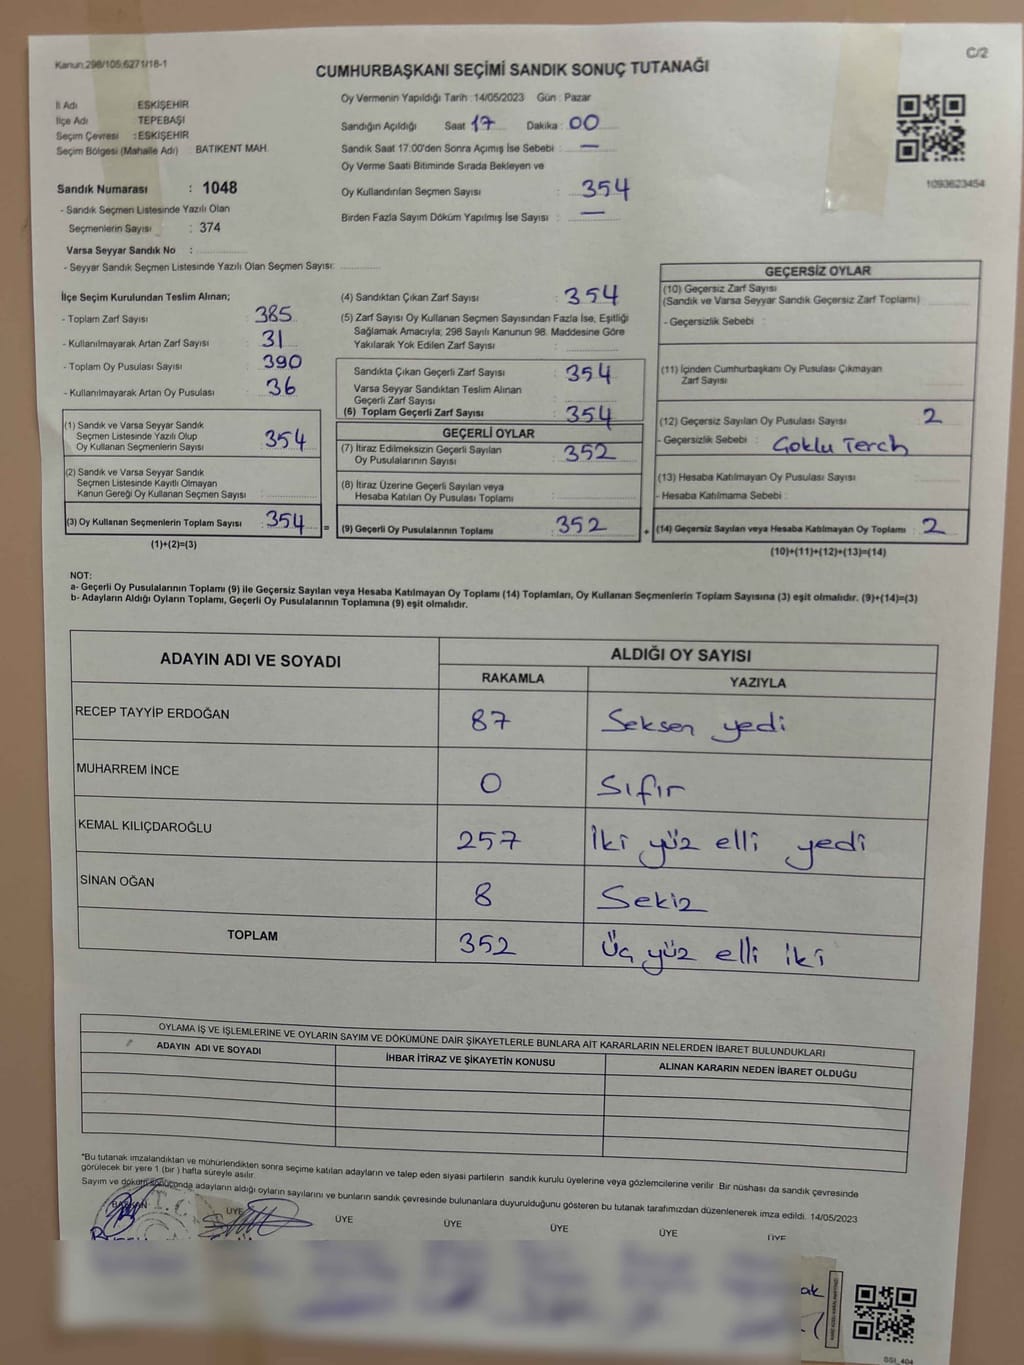 Kanun:298/105;6271/18-1
C/2
CUMHURBAŞKANI SEÇİMİ SANDIK SONUÇ TUTANAĞI
İl Adı : ESKİŞEHİR
İlçe Adı : TEPEBAŞI
Seçim Çevresi : ESKİŞEHİR
Seçim Bölgesi (Mahalle Adı) : BATIKENT MAH.
Sandık Numarası : 1048
- Sandık Seçmen Listesinde Yazılı Olan
Seçmenlerin Sayısı : 374
Varsa Seyyar Sandık No :
- Seyyar Sandık Seçmen Listesinde Yazılı Olan Seçmen Sayısı:
Oy Vermenin Yapıldığı Tarih :14/05/2023 Gün : Pazar
Sandığın Açıldığı Saat 17 Dakika : 00
Sandık Saat 17.00'den Sonra Açımış İse Sebebi : —
Oy Verme Saati Bitiminde Sırada Bekleyen ve
Oy Kullandırılan Seçmen Sayısı : 354
Birden Fazla Sayım Döküm Yapılmış İse Sayısı : —
1093623454
İlçe Seçim Kurulundan Teslim Alınan;
- Toplam Zarf Sayısı : 385
- Kullanılmayarak Artan Zarf Sayısı : 31
- Toplam Oy Pusulası Sayısı : 390
- Kullanılmayarak Artan Oy Pusulası : 36
(1) Sandık ve Varsa Seyyar Sandık
Seçmen Listesinde Yazılı Olup
Oy Kullanan Seçmenlerin Sayısı : 354
(2) Sandık ve Varsa Seyyar Sandık
Seçmen Listesinde Kayıtlı Olmayan
Kanun Gereği Oy Kullanan Seçmen Sayısı :
(3) Oy Kullanan Seçmenlerin Toplam Sayısı : 354 =
(1)+(2)=(3)
(4) Sandıktan Çıkan Zarf Sayısı : 354
(5) Zarf Sayısı Oy Kullanan Seçmen Sayısından Fazla İse, Eşitliği
Sağlamak Amacıyla; 298 Sayılı Kanunun 98. Maddesine Göre
Yakılarak Yok Edilen Zarf Sayısı :
Sandıkta Çıkan Geçerli Zarf Sayısı : 354
Varsa Seyyar Sandıktan Teslim Alınan
Geçerli Zarf Sayısı :
(6) Toplam Geçerli Zarf Sayısı : 354
GEÇERLİ OYLAR
(7) İtiraz Edilmeksizin Geçerli Sayılan
Oy Pusulalarının Sayısı : 352
(8) İtiraz Üzerine Geçerli Sayılan veya
Hesaba Katılan Oy Pusulası Toplamı :
(9) Geçerli Oy Pusulalarının Toplamı : 352 +
GEÇERSİZ OYLAR
(10) Geçersiz Zarf Sayısı :
(Sandık ve Varsa Seyyar Sandık Geçersiz Zarf Toplamı)
- Geçersizlik Sebebi :
(11) İçinden Cumhurbaşkanı Oy Pusulası Çıkmayan
Zarf Sayısı :
(12) Geçersiz Sayılan Oy Pusulası Sayısı : 2
- Geçersizlik Sebebi : Çoklu Terch
(13) Hesaba Katılmayan Oy Pusulası Sayısı :
- Hesaba Katılmama Sebebi :
(14) Geçersiz Sayılan veya Hesaba Katılmayan Oy Toplamı : 2
(10)+(11)+(12)+(13)=(14)
NOT:
a- Geçerli Oy Pusulalarının Toplamı (9) ile Geçersiz Sayılan veya Hesaba Katılmayan Oy Toplamı (14) Toplamları, Oy Kullanan Seçmenlerin Toplam Sayısına (3) eşit olmalıdır. (9)+(14)=(3)
b- Adayların Aldığı Oyların Toplamı, Geçerli Oy Pusulalarının Toplamına (9) eşit olmalıdır.
ADAYIN ADI VE SOYADI
ALDIĞI OY SAYISI
RAKAMLA YAZIYLA
RECEP TAYYİP ERDOĞAN 87 Seksen yedi
MUHARREM İNCE 0 Sıfır
KEMAL KILIÇDAROĞLU 257 İki yüz elli yedi
SİNAN OĞAN 8 Sekiz
TOPLAM 352 Üç yüz elli iki
OYLAMA İŞ VE İŞLEMLERİNE VE OYLARIN SAYIM VE DÖKÜMÜNE DAİR ŞİKAYETLERLE BUNLARA AİT KARARLARIN NELERDEN İBARET BULUNDUKLARI
ADAYIN ADI VE SOYADI İHBAR İTİRAZ VE ŞİKAYETİN KONUSU ALINAN KARARIN NEDEN İBARET OLDUĞU
*Bu tutanak imzalandıktan ve mühürlendikten sonra seçime katılan adayların ve talep eden siyasi partilerin sandık kurulu üyelerine veya gözlemcilerine verilir. Bir nüshası da sandık çevresinde
görülecek bir yere 1 (bir) hafta süreyle asılır.
Sayım ve döküm sonucunda adayların aldığı oyların sayılarını ve bunların sandık çevresinde bulunanlara duyurulduğunu gösteren bu tutanak tarafımızdan düzenlenerek imza edildi. 14/05/2023
BAŞKAN ÜYE ÜYE ÜYE ÜYE ÜYE ÜYE
SSI_404